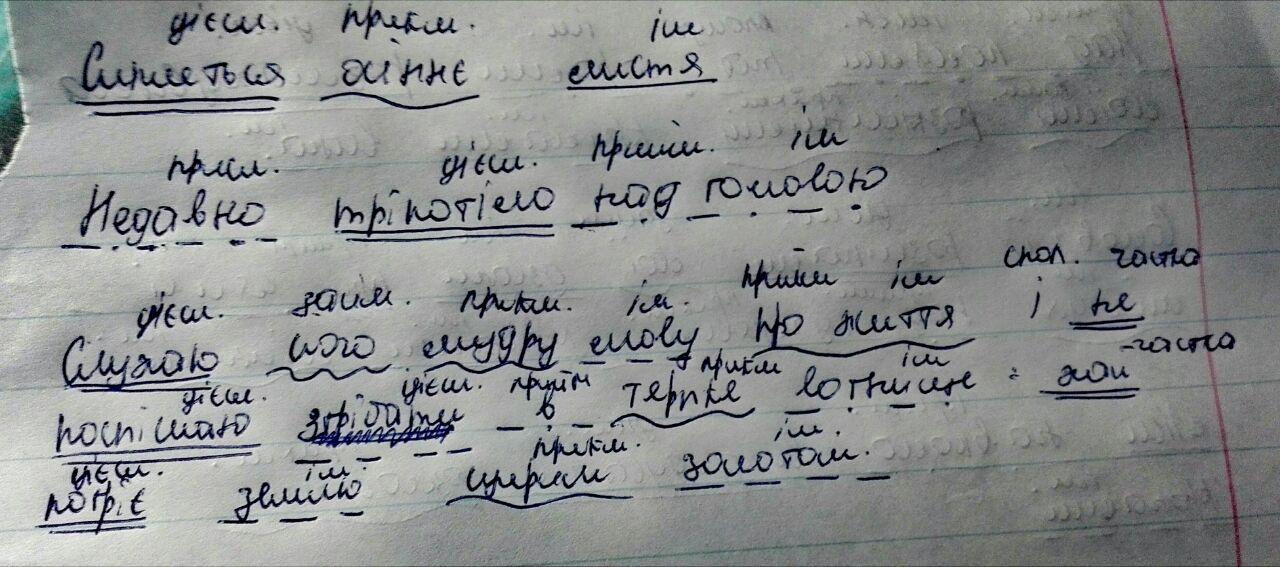 дієсл. прикм. ім
Сиплеться осіннє листя
присл. дієсл. прийм. ім
Недавно тріпотіло над головою
дієсл. займ. прикм. ім. прийм ім спол. частка
Слухаю його мудру мову про життя і не
дієсл. дієсл. прийм прикм ім частка
поспішаю згрібати в терпке вогнище: хай
дієсл. ім. прикм. ім.
погріє землю щирим золотом.